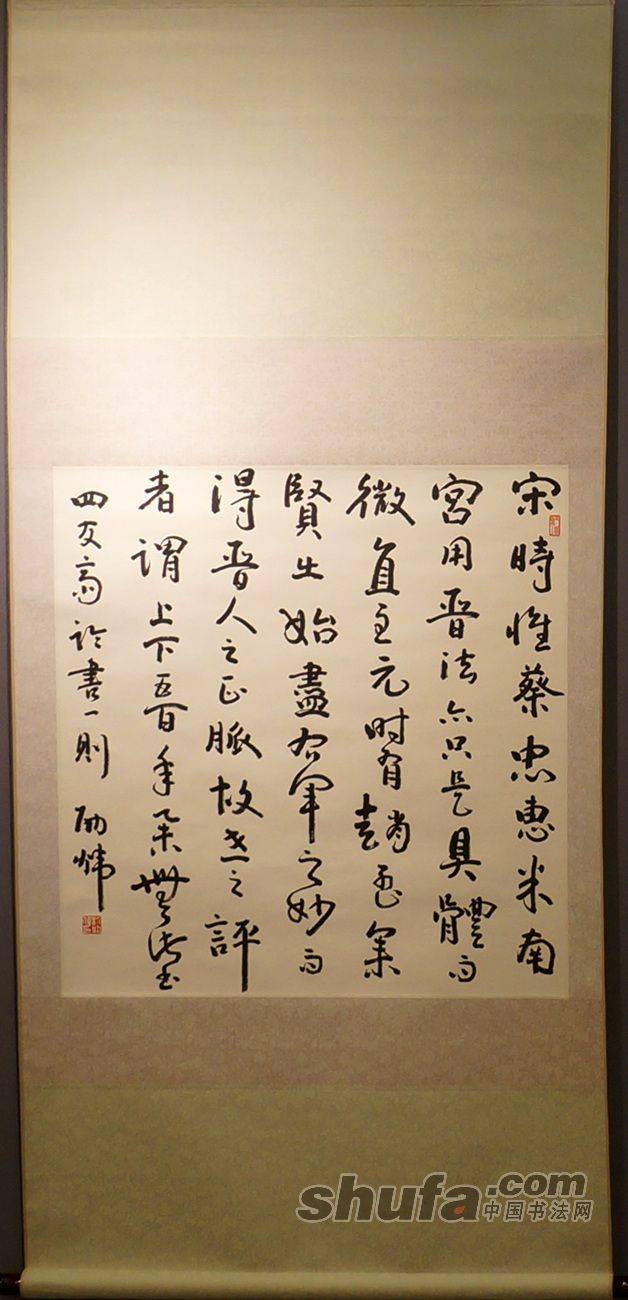 宋時惟蔡忠惠米南
宮用晉法亦只是具體而
微直至元时有趙集
賢出始盡右軍之妙而
得晉人之正脈故世之評
者謂上下五百年舉無此書
四友斎論書一則 煒
shufa.com
中国书法网